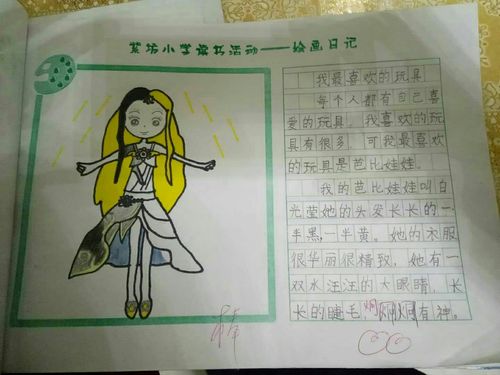 紫坊小学读书活动——绘画日记
我最喜欢的玩具
每个人都有自己喜
爱的玩具,我喜欢的玩
具有很多,可我最喜欢
的玩具是芭比娃娃。
我的芭比娃娃叫白
光莹她的头发长长的一
半黑,一半黄。她的衣服
很华丽很精致,她有一
双水汪汪的大眼睛,长
长的睫毛,炯炯有神。
棒